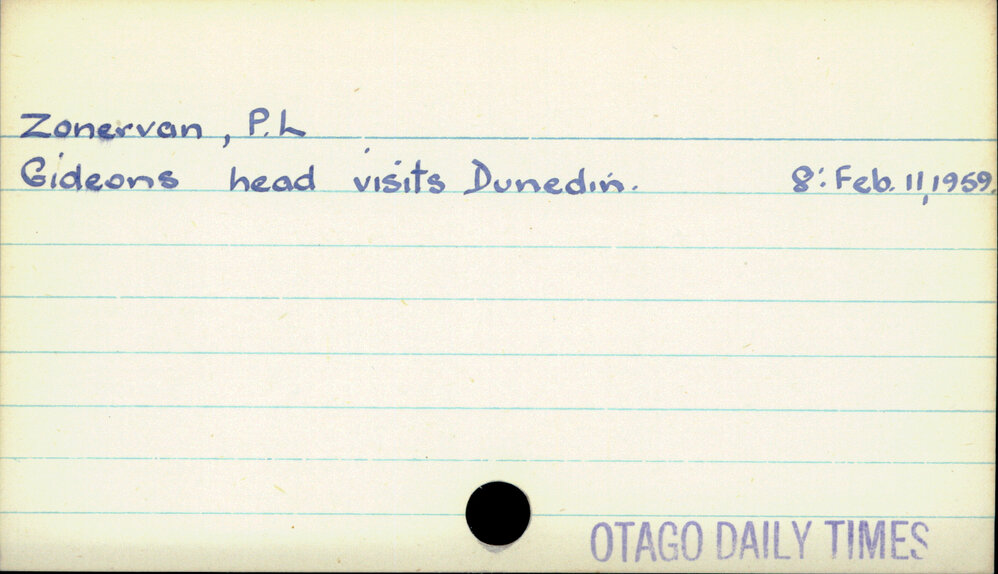 Zonervan, P.L
Gideons head visits Dunedin. 8: Feb. 11, 1959.
OTAGO DAILY TIMES